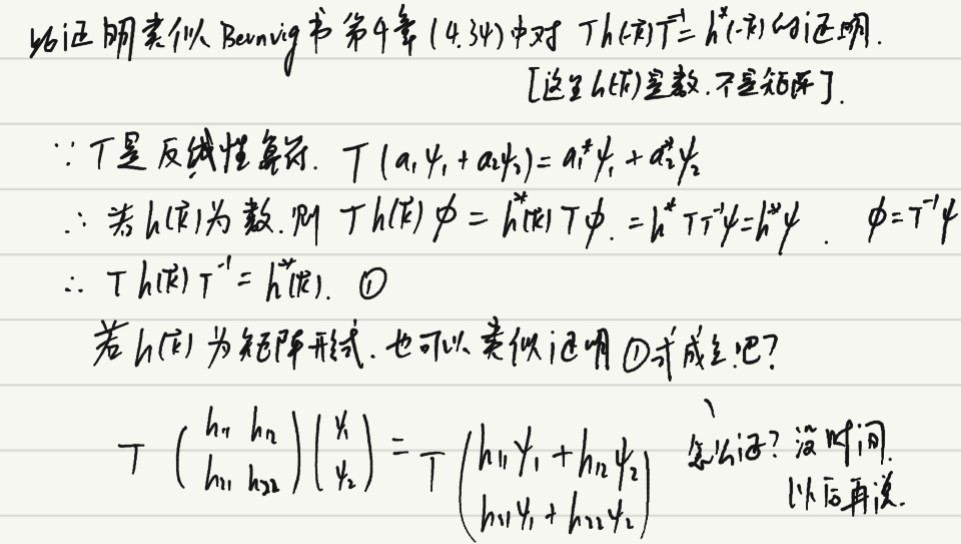 证明类似 Bernvig 书 第4章 (4.34) 中对 T h(k) T⁻¹ = h*(-k) 的证明.
[这里 h(k) 是数. 不是矩阵].
∵ T是反线性算符. T (a₁ψ₁ + a₂ψ₂) = a₁*ψ₁ + a₂*ψ₂
∴ 若 h(k) 为数. 则 T h(k) φ = h*(k) T φ. = h* T T⁻¹ψ = h*ψ. φ = T⁻¹ψ
∴ T h(k) T⁻¹ = h*(k). ①
若 h(k) 为矩阵形式. 也可以类似证明 ①式成立吧?
T ( h₁₁ h₁₂ ) ( ψ₁ ) = T ( h₁₁ψ₁ + h₁₂ψ₂ ) 怎么证? 没时间.
( h₂₁ h₂₂ ) ( ψ₂ ) ( h₂₁ψ₁ + h₂₂ψ₂ ) 以后再说.